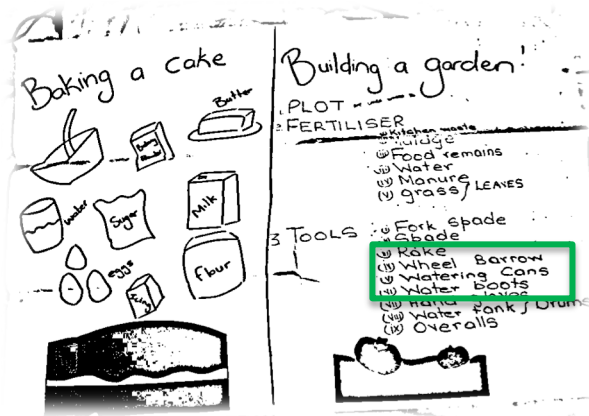 Baking a cake
Butter
Baking
Powder
water
Sugar
Milk
eggs
Icing
flour
Building a garden!
1. PLOT
2. FERTILISER
(i) Kitchen waste
(ii) Food remains
(iii) Water
(iv) Manure
(v) grass / LEAVES
3 TOOLS
(i) Fork Spade
(ii) Spade
(iii) Rake
(iv) Wheel Barrow
(v) Watering Cans
(vi) Water boots
(vii) Hand gloves
(viii) Water tank / Drums
(ix) Overalls